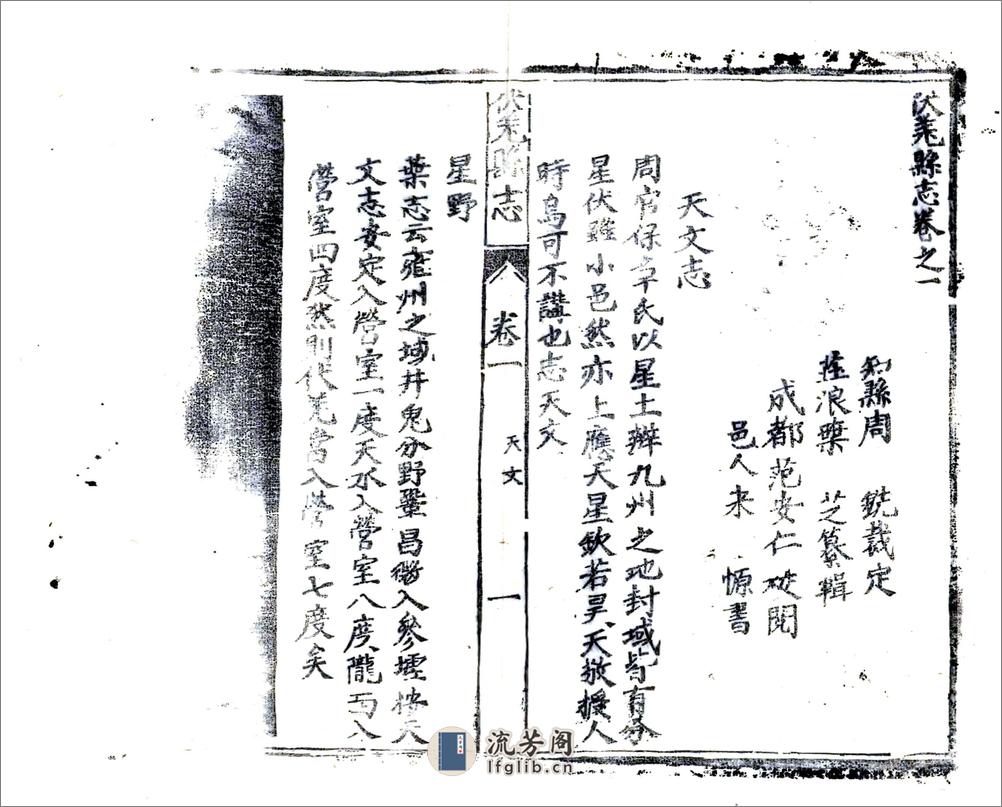 伏羌縣志卷之一
知縣周 銑裁定
莊浪 芝纂輯
成都范安仁校閱
邑人来 愫書
天文志
周官保章氏以星土辨九州之地封域皆有分
星伏雖小邑然亦上應天星欽若昊天敬授人
時烏可不講也志天文
伏羌縣志
卷一
天文
一
星野
葉志云雍州之域井鬼分野鞏昌入參墟按天
文志安定入營室一度天水入營室八度隴西入
營室四度然則伏羌當入營室七度矣
流芳阁
lfglib.cn